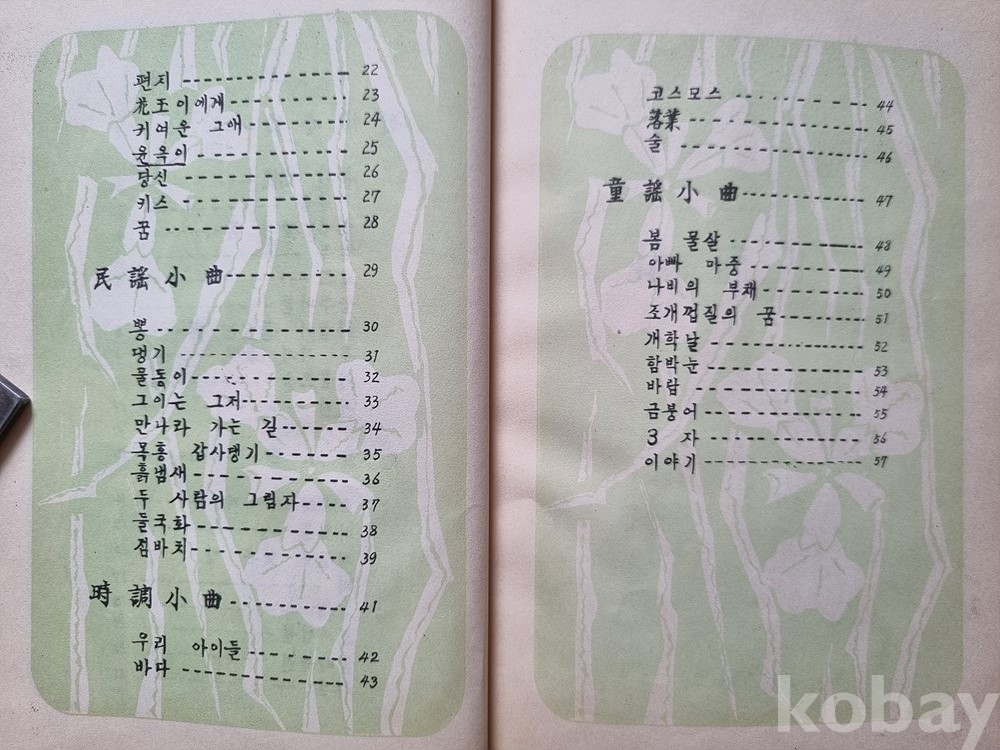 편지 ---------------- 22
花王이에게 ------------ 23
귀여운 그애 ----------- 24
윤옥이 -------------- 25
당신 --------------- 26
키스 --------------- 27
꿈 ---------------- 28
民謠小曲 ------------ 29
뽕 ---------------- 30
댕기 --------------- 31
물동이 -------------- 32
그이는 그저 ----------- 33
만나라 가는 길 -------- 34
목홍 갑사댕기 --------- 35
흙냄새 -------------- 36
두 사람의 그림자 ------ 37
들국화 -------------- 38
점바치 -------------- 39
時調小曲 ------------ 41
우리 아이들 ----------- 42
바다 --------------- 43
코스모스 ------------- 44
落葉 --------------- 45
술 ---------------- 46
童謠小曲 ------------ 47
봄 물살 ------------- 48
아빠 마중 ------------ 49
나비의 부채 ----------- 50
조개껍질의 꿈 --------- 51
개학날 -------------- 52
함박눈 -------------- 53
바람 --------------- 54
금붕어 -------------- 55
3 자 --------------- 56
이야기 -------------- 57
kobay